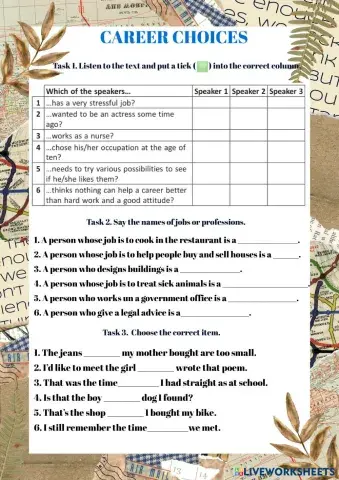 CAREER CHOICES
Task 1. Listen to the text and put a tick ( ) into the correct column
Which of the speakers... Speaker 1 Speaker 2 Speaker 3
1 ...has a very stressful job?
2 ...wanted to be an actress some time
ago?
3 ...works as a nurse?
4 ...chose his/her occupation at the age of
ten?
5 ...needs to try various possibilities to see
if he/she likes them?
6 ...thinks nothing can help a career better
than hard work and a good attitude?
Task 2. Say the names of jobs or professions.
1. A person whose job is to cook in the restaurant is a ____________.
2. A person whose job is to help people buy and sell houses is a ______.
3. A person who designs buildings is a ____________.
4. A person whose job is to treat sick animals is a __________________.
5. A person who works un a government office is a ______________.
6. A person who give a legal advice is a______________.
Task 3. Choose the correct item.
1. The jeans ________ my mother bought are too small.
2. I'd like to meet the girl ________ wrote that poem.
3. That was the time_________ I had straight as at school.
4. Is that the boy ________ dog I found?
5. That's the shop ________ I bought my bike.
6. I still remember the time_________we met.
LIVEWORKSHEETS